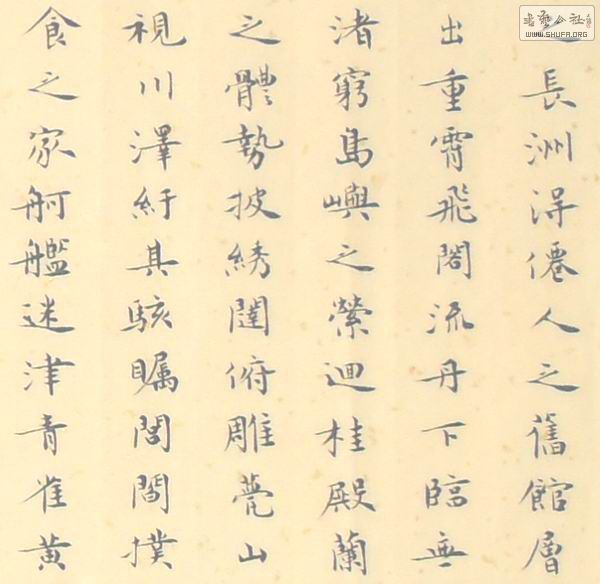 之長洲得僊人之舊館層
出重霄飛閣流丹下臨無
渚窮島嶼之縈迴桂殿蘭
之體勢披綉闥俯雕甍山
視川澤紆其駭矚閭閻撲
食之家舸艦迷津青雀黃
書藝公社
WWW.SHUFA.ORG